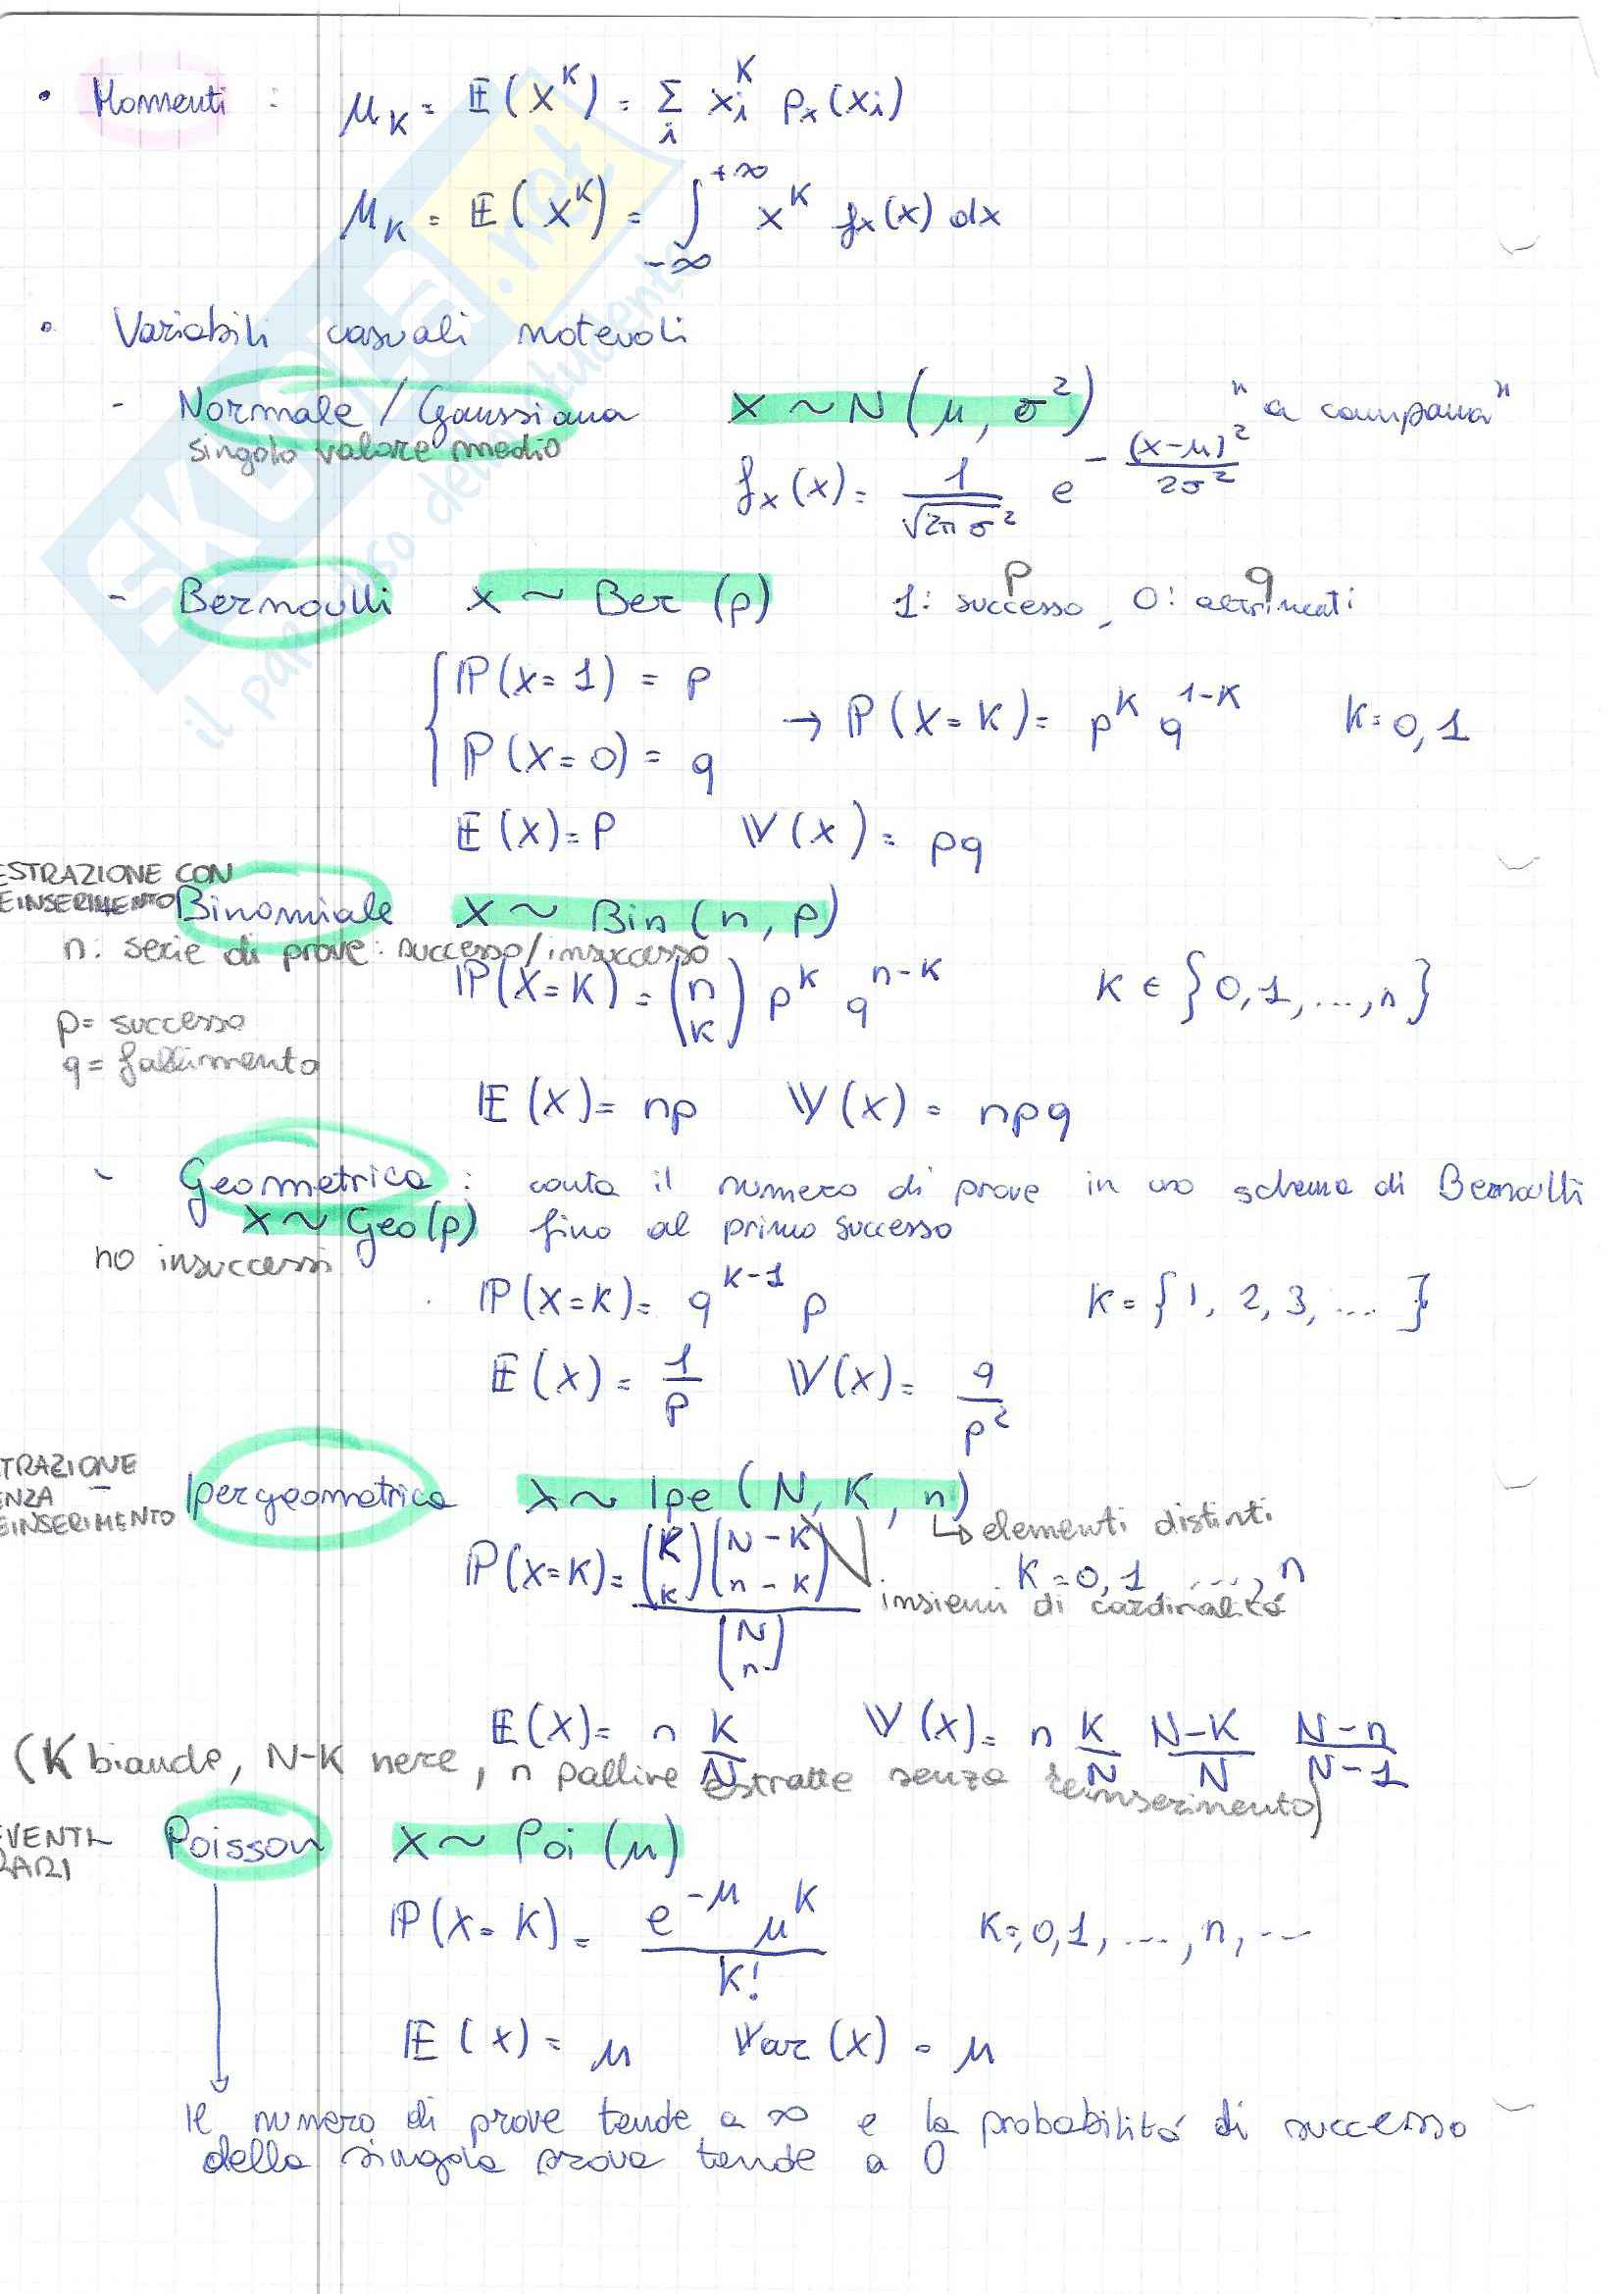 • Momenti : μ_K = E(X^K) = Σ_i x_i^K p_x(x_i)
μ_K = E(X^K) = ∫_{-∞}^{+∞} x^K f_x(x) dx
• Variabili casuali notevoli
- Normale / Gaussiana X ~ N(μ, σ²) "a campana"
singolo valore medio
f_x(x) = 1/√(2π σ²) e^{-(x-μ)²/2σ²}
p q
- Bernoulli X ~ Ber (p) 1: successo, 0: altrimenti
{ P(X=1) = p
→ P(X=K) = p^K q^{1-K} K=0,1
P(X=0) = q
E(X)=P V(X) = pq
ESTRAZIONE CON
EINSERIMENTO Binomiale X ~ Bin (n, p)
n: serie di prove: successo/insuccesso
P(X=K) = (n K) p^K q^{n-K} K ∈ {0,1,...,n}
p= successo
q= fallimento
E(X)= np V(X) = npq
- Geometrica : conta il numero di prove in uno schema di Bernoulli
X ~ Geo(p) fino al primo successo
no insuccessi
P(X=k)= q^{K-1} p K={1, 2, 3, ...}
E(X)= 1/p V(X)= q/p²
TRAZIONE
ENZA
EINSERIMENTO Ipergeometrica X ~ Ipe (N, K, n)
↳ elementi distinti
P(X=K)= (K k)(N-K n-k) / (N n) K=0,1 ..., n
insiemi di cardinalitá
E(X)= n K/N V(X)= n K/N N-K/N N-n/N-1
(K bianche, N-K nere, n palline estratte senza reinserimento)
EVENTI
RARI
Poisson X ~ Poi (μ)
P(X=K) = e^{-μ} μ^K / K! K=,0,1,...,n,...
E(X) = μ Var(X) = μ
Il numero di prove tende a ∞ e la probabilitá di successo
della singola prova tende a 0
SKUOLA.net
il paradiso dello studente